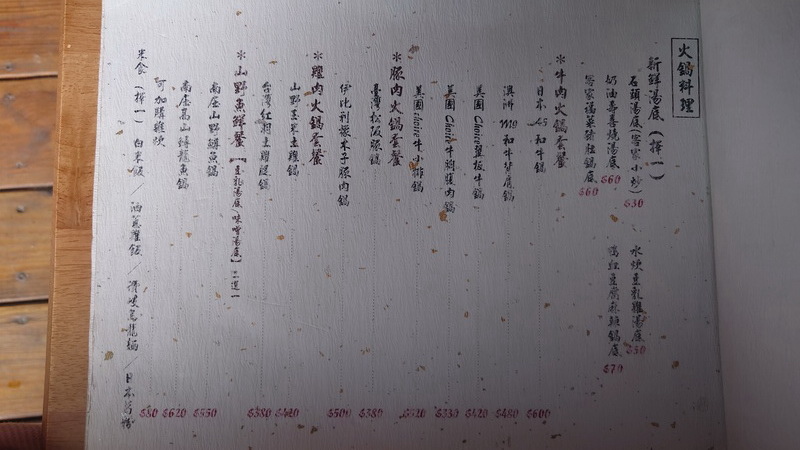 火鍋料理
新鮮湯底（擇一）
石頭湯底(客家小炒) $30
水炊豆乳雞湯底 $50
奶油壽喜燒湯底 $60
鴨血豆腐麻辣鍋底 $70
客家福菜豬肚鍋底 $60
＊牛肉火鍋套餐
日本A5和牛鍋 $600
澳洲M9和牛 $480
美國Choice翼板牛鍋 $420
美國Choice牛胸腹肉鍋 $330
美國choice牛小排鍋 $520
＊豚肉火鍋套餐
臺灣松阪豚鍋 $380
伊比利橡木子豚肉鍋 $500
＊雞肉火鍋套餐
山野玉米土雞鍋 $420
台灣紅羽土雞腿鍋 $380
＊山野魚鮮餐【豆乳湯底 味噌湯底】二選一
高座山野鱒魚鍋 $550
高座高山鱘龍魚鍋 $620
可加購雞炊 $80
米食（擇一）白米飯／油蔥雞飯／讚岐烏龍麵／日本